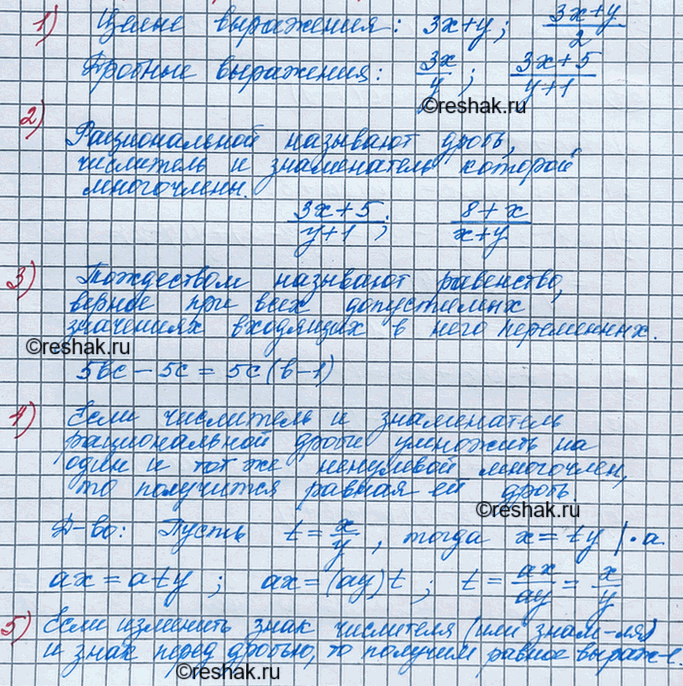 1) Целые выражения: 3x+y; (3x+y)/2
Дробные выражения: 3x/y; (3x+5)/(y+1)
©reshak.ru
2)
Рациональной называют дробь,
числитель и знаменатель которой
многочлены.
(3x+5)/(y+1); (8+x)/(x+y)
3) Тождеством называют равенство,
верное при всех допустимых
значениях входящих в него переменных.
©reshak.ru
5bc – 5c = 5c(b-1)
4) Если числитель и знаменатель
рациональной дроби умножить на
один и тот же ненулевой многочлен,
то получится равная ей дробь
©reshak.ru
Д-во: Пусть t = x/y, тогда x = ty |·a
ax = aty; ax = (ay)t; t = ax/ay = x/y
5) Если изменить знак числителя (или знам-ля)
и знак перед дробью, то получим равное выраж-е.
©reshak.ru